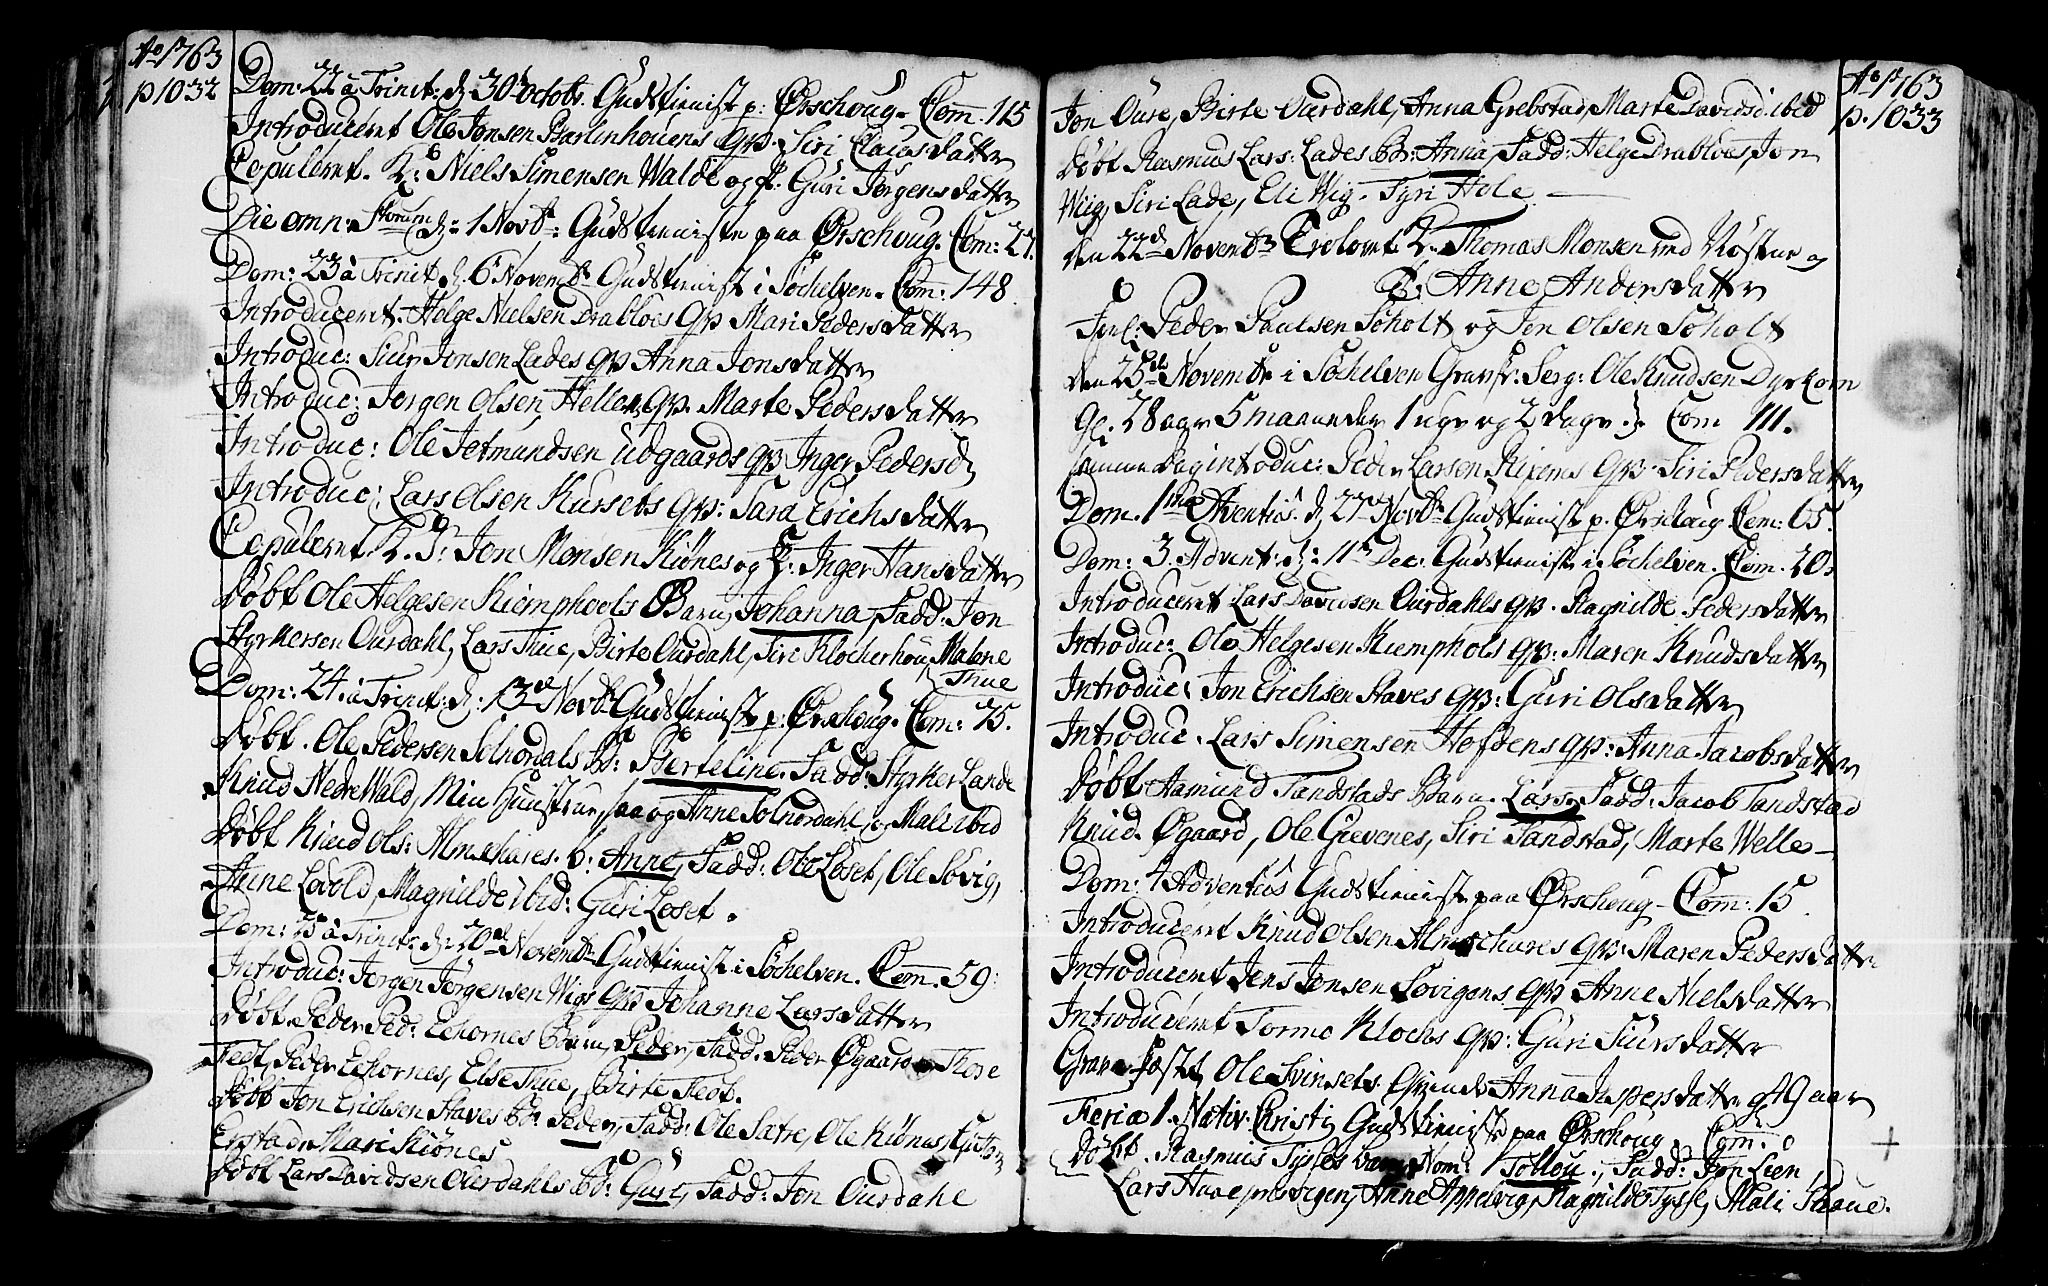 Ao 1763
p 1032
Dom: 22 à Trinit: d. 30t Octobr. Gudstienist p: Ørschoug. Com. 115
Introduceret Ole Jonsen Barlinhouens qv: Siri Clausdatter
Copuleret. K: Niels Simensen Walde og P. Guri Jørgensdatter
Die omn: Storum d: 1 Novbr: Gudstieniste paa Ørschoug. Com: 27.
Dom: 23 à Trinit. d. 6t Novembr Gudstienist i Søchelven. Com: 148
Introduceret Helge Nielsen Drabloes qv Mari Pedersdatter
Introduc: Siur Jensen Lades qv Anna Jonsdatter
Introduc: Jørgen Olsen Hellen qv. Marte Pedersdatter
Introduc: Ole Jetmundsen Udgaards qv Inger Pedersd
Introduc: Lars Olsen Kursets qv: Sara Erichsdatter
Copuleret K. S: Jon Monsen Kiønes og P: Inger Hansdatter
Døbt Ole Helgesen Kiemphoels Barn, Johanna, Fadd: Jon
Styrkersen Ourdahl, Lars Thue, Birte Ourdahl, Siri Klocherhou, Malene
Thue
Dom: 24 à Trinit: d: 13d Novbr Gudstienist p: Ørschoug. Com: 75.
Døbt. Ole Pedersen Solnordals B: Berteline. Fadd: Styrker Lande
Knud Nedre Wald, Min Hustrue, saa og Anne Solnordahl, og Mali ibid
Døbt Knud Ols: Almschares. b: Anne, Fadd: Ole Løset, Ole Søvig,
Anne Løvold, Magnilde ibid: Guri Løset.
Dom: 25 à Trinit: d: 20de Novembr Gudstienist i Søchelven. Com. 59:
Introduc: Jørgen Jørgensen Wigs qv Johanne Larsdatter
Døbt Peder Ped: Eehornes barn, Peder, Fadd: Peder Øgaard Those
Feet, Peder Eehornes, Else Thue, Birte Feet.
Døbt Jon Erichsen Haves B: Peder, Fadd: Ole Sætre, Ole Kiønes,
Erstad, Mari Kiønes
Døbt Lars Davidsen Ourdahls B: Guri, Fadd: Jon Ourdahl
Ao 1763
p. 1033
Jon Oure, Birte Ourdahl, Anna Grebstad, Marte Davidsd. ibid
Døbt Rasmus Lars: Lades B: Anna, Fadd: Helge Drabloes, Jon
Wiig, Siri Lade, Eli Wig. Syri Hole.
den 22d Novembr Trolovet K. Thomas Monsen ved Røstene og
P. Anne Andersdatter
Forl: Peder Paulsen Søholt og Jon Olsen Søholt
den 25de Novembr i Søchelven Gravf. Serg: Ole Knudsen Dyrkorn
Gl. 28 aar 5 maaneder 1 uge og 2 dage. Com 111.
samme dag introduc: Peder Larsen Rivenes qv: Siri Pedersdatter
Dom. 1ma Adventus d. 27 Novbr Gudstienist p. Ørschoug Com: 65.
Dom: 3. Advent: d: 11te Dec: Gudstienist i Søchelven. Com. 20.
Introduceret Lars Davidsen Ourdahls qv. Magnilde Pedersdatter
Introduc: Ole Helgesen Kiemphols qv: Maren Knudsdatter
Introduc: Jon Erichsen Haves qv: Guri Olsdatter
Introduc. Lars Simensen Hofdens qv: Anna Jacobsdatter
Døbt Aamund Tandstads Barn. Lars, Fadd: Jacob Tandstad
Knud Øgaard, Ole Gievenes, Siri Tandstad, Marte Welle
Dom: 4 Adventus Gudstienist paa Ørschoug Com: 15
Introduceret Knud Olsen Almschares qv: Maren Pedersdatter
Introduceret Jens Jonsen Søvigens qv: Anne Nielsdatter
Introduceret Tormo Klochs qv: Guri Siursdatter
Grav-fæstet Ole Svinsets Qvinde Anna Jespersdatter 49 aar
Feria 1. Nativ: Christi Gudstieniste paa Ørschoug Com: 0
Døbt. Rasmus Tysses barn Nom: Tolleu, Fadd: Jon Lien,
Lars Haae, Anne Appelvig, Magnilde Tysse, Mali